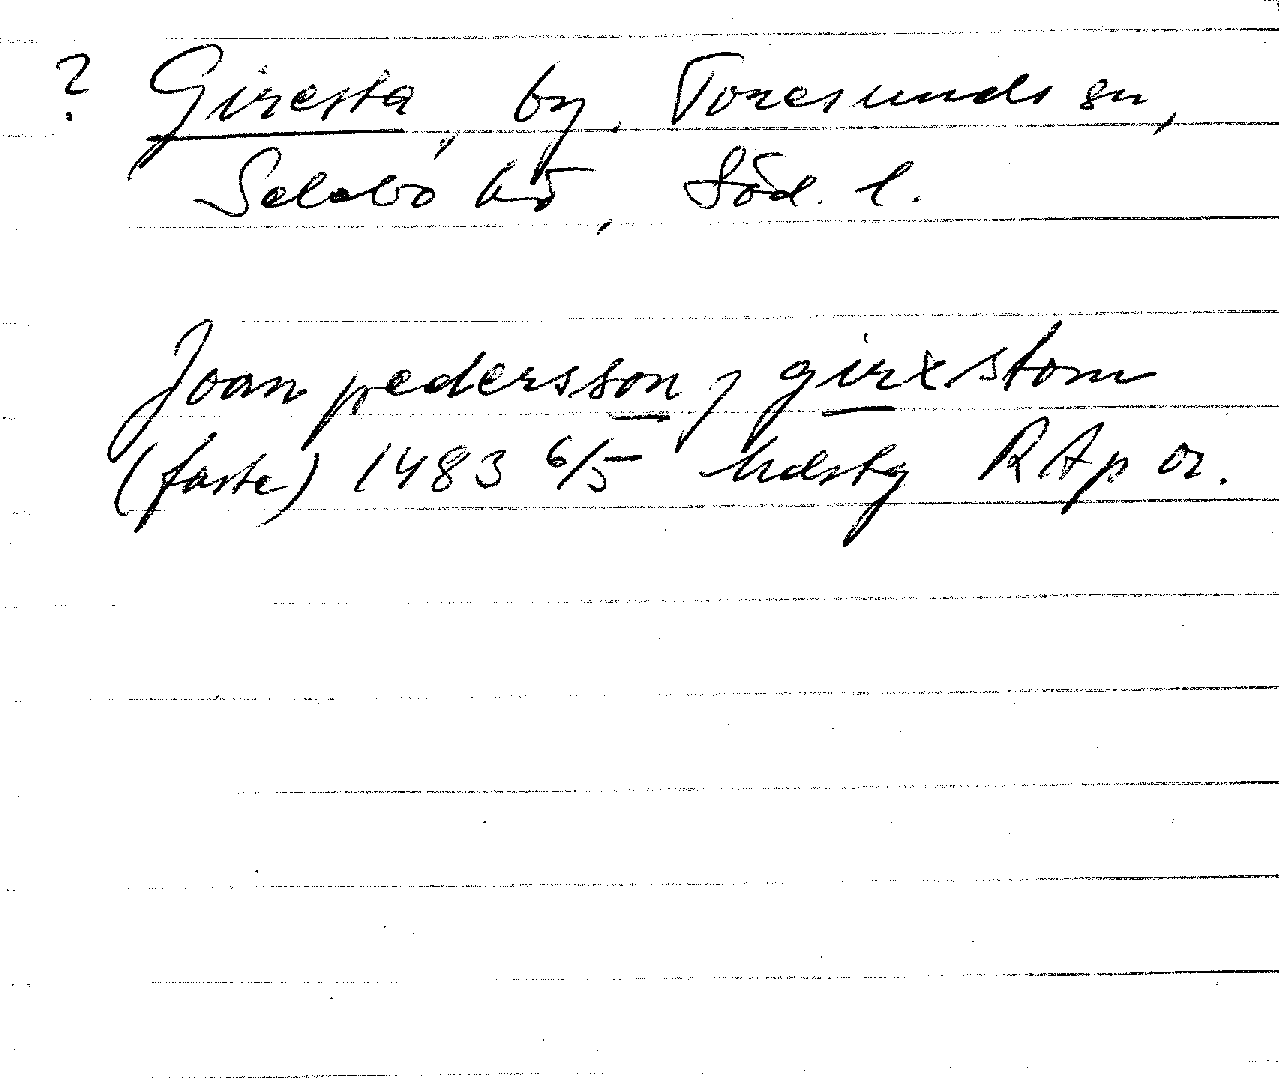 ? Giresta, by, Toresunds sn,
Selebo hd, Söd. l.
Joan pedersson j girxstom
(faste) 1483 6/5 hdsty RAp or.